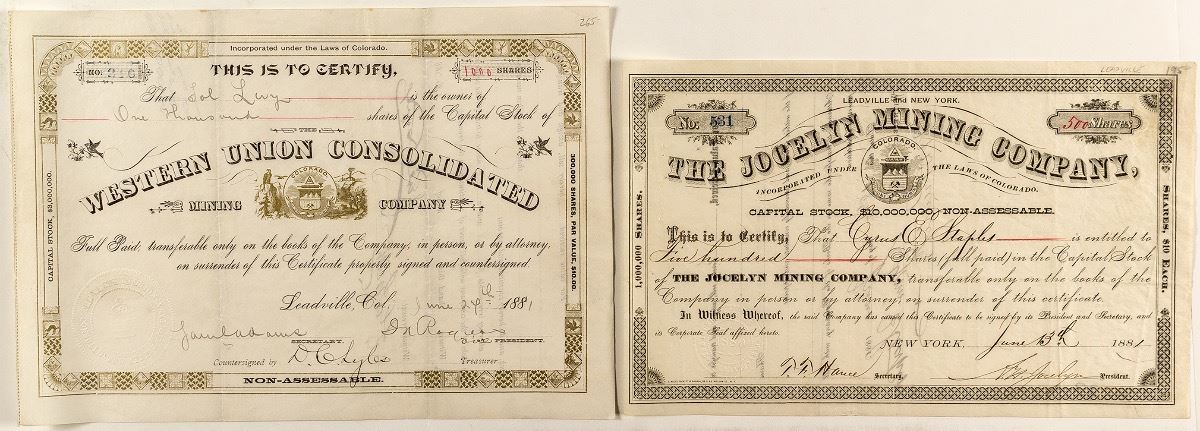 265-
Incorporated under the Laws of Colorado.
NO. 216
THIS IS TO CERTIFY,
1000 SHARES
That Sol Levy is the owner of
One Thousand shares of the Capital Stock of
THE
WESTERN UNION CONSOLIDATED
COLORADO.
MINING COMPANY
CAPITAL STOCK, $3,000,000.
300,000 SHARES, PAR VALUE, $10.00.
Full Paid; transferable only on the books of the Company, in person, or by attorney,
on surrender of this Certificate properly signed and countersigned.
Leadville, Col. June 24th 1881
SECRETARY.
Vice PRESIDENT.
Countersigned by
Treasurer
NON-ASSESSABLE.
LEADVILLE
LEADVILLE and NEW YORK.
No. 531
500 Shares
THE JOCELYN MINING COMPANY,
COLORADO.
INCORPORATED UNDER THE LAWS OF COLORADO.
CAPITAL STOCK, $10,000,000, NON-ASSESSABLE.
1,000,000 SHARES.
SHARES, $10 EACH.
This is to Certify, That Cyrus E. Staples is entitled to
Five hundred Shares (full paid) in the Capital Stock
of THE JOCELYN MINING COMPANY, transferable only on the books of the
Company in person or by attorney, on surrender of this certificate.
In Witness Whereof, the said Company has caused this Certificate to be signed by its President and Secretary, and
its Corporate Seal affixed hereto.
NEW YORK, June 13th 1881
Secretary.
President.